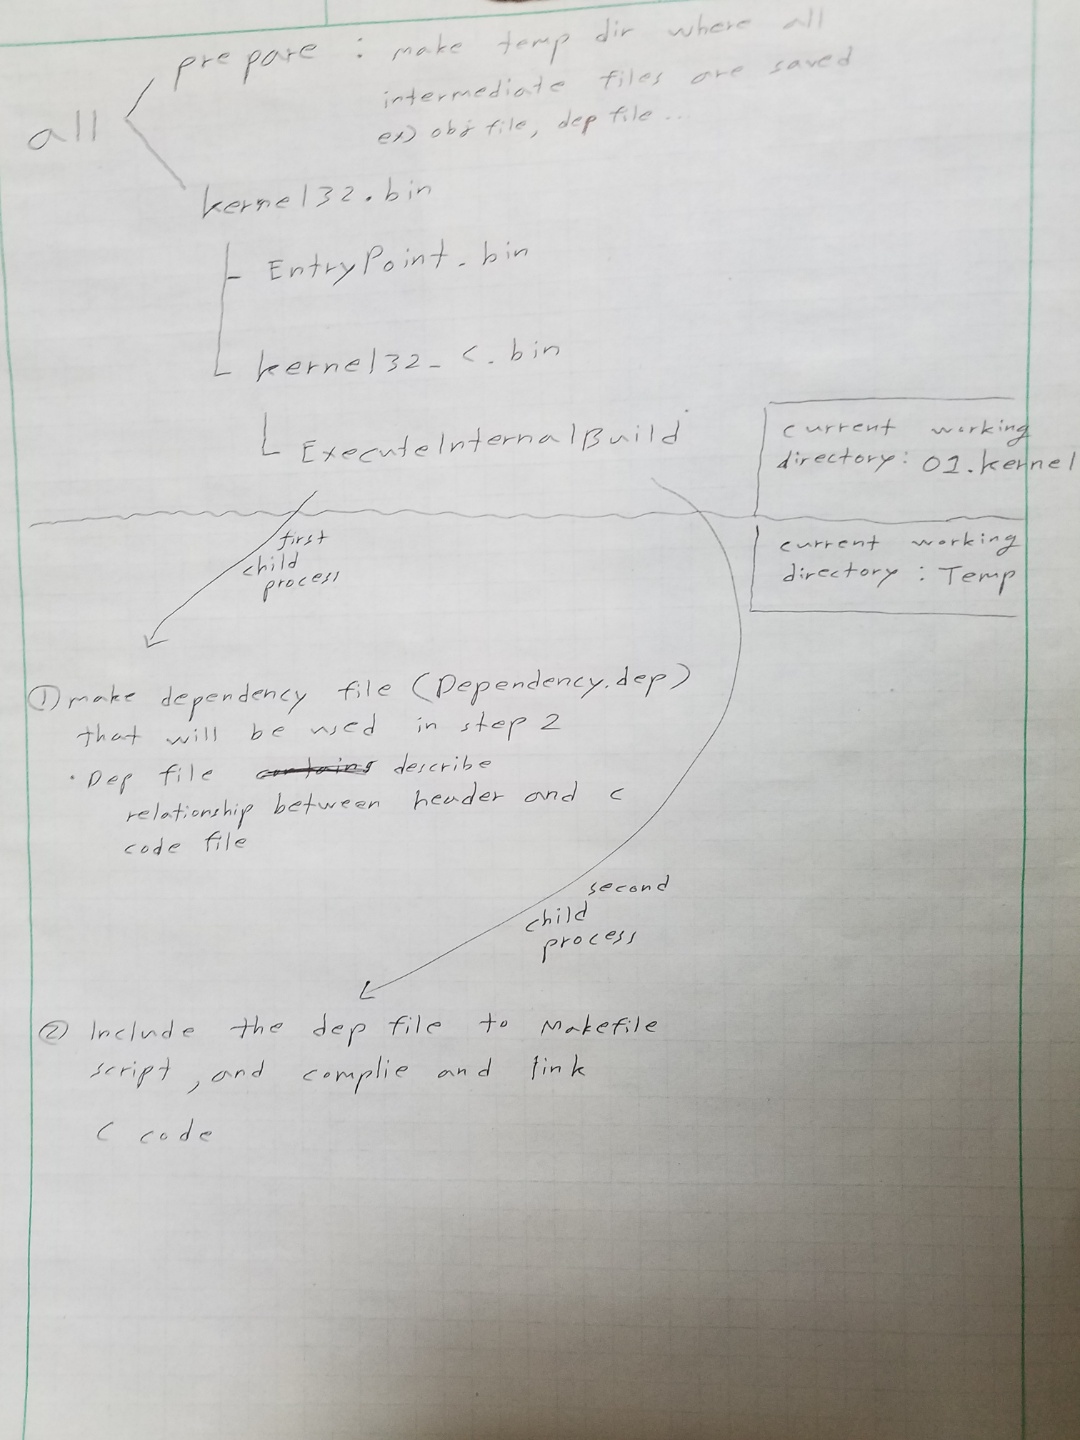 prepare : make temp dir where all
intermediate files are saved
ex) obj file, dep file ..
all
kernel32.bin
EntryPoint.bin
kernel32_c.bin
ExecuteInternalBuild
current working
directory: 01.kernel
current working
directory : Temp
first
child
process
① make dependency file (Dependency.dep)
that will be used in step 2
· Dep file contains describe
relationship between header and c
code file
second
child
process
② Include the dep file to Makefile
script, and complie and link
C code